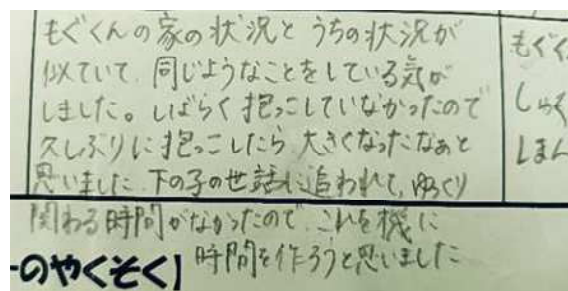 もぐくんの家の状況とうちの状況が
似ていて、同じようなことをしている気が
しました。しばらく抱っこしていなかったので
久しぶりに抱っこしたら大きくなったなぁと
思いました。下の子の世話に追われて、ゆっくり
関わる時間がなかったので、これを機に
時間を作ろうと思いました
のやくそく】
もぐく
しゅく
しまん